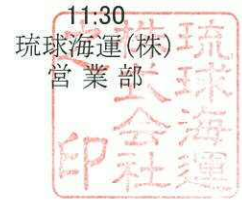 11:30
琉球海運(株)
営業部
琉球海運
株式会社
之印